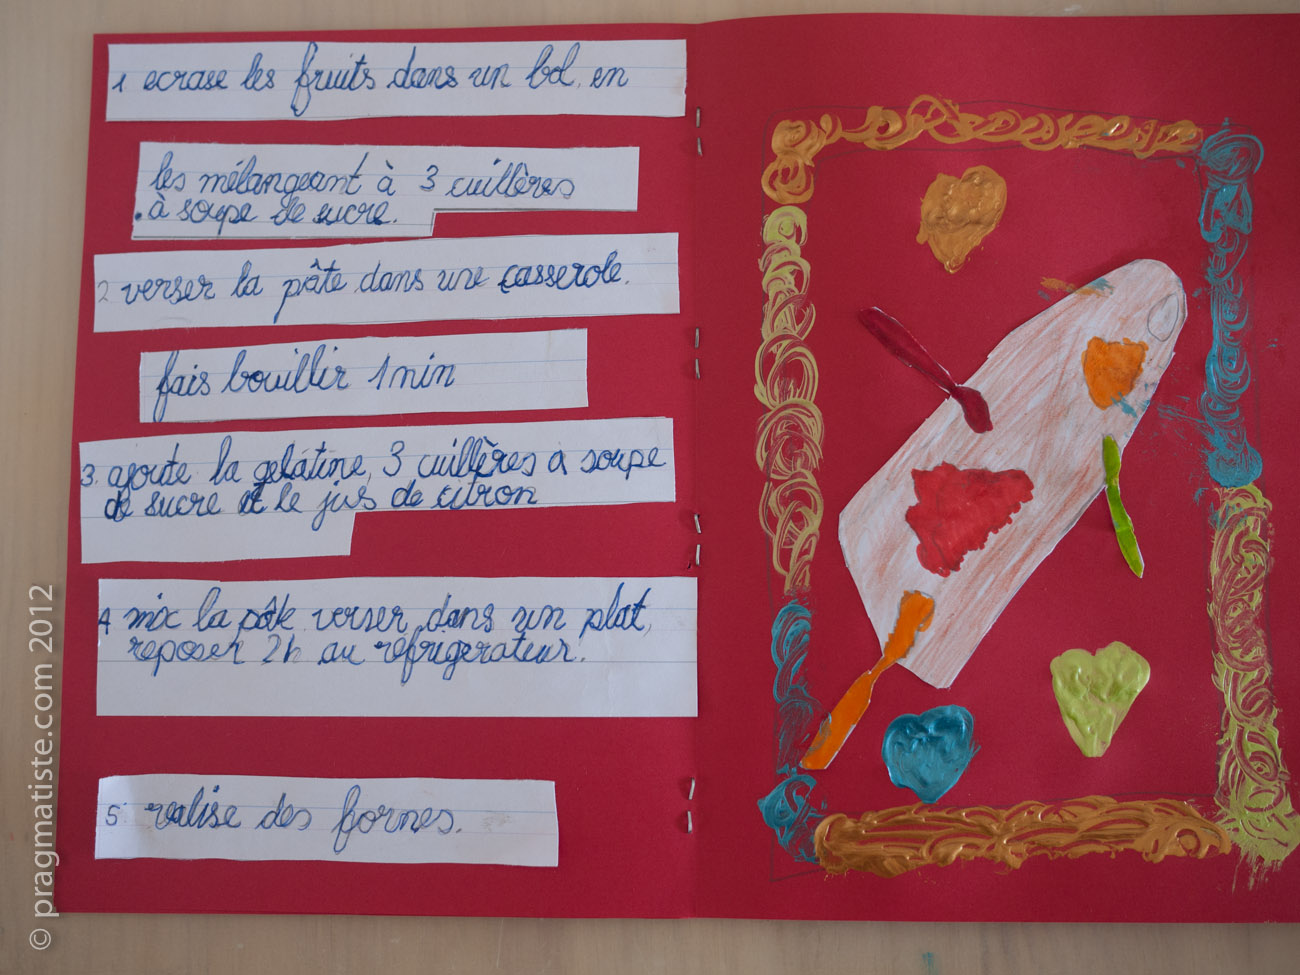 1 ecrase les fruits dans un bol, en
les mélangeant à 3 cuillères
à soupe de sucre.
2 verser la pâte dans une casserole.
fais bouillir 1 min
3 ajoute la gelatine, 3 cuillères à soupe
de sucre et le jus de citron
4 mix la pâte verser dans un plat,
reposer 2h au réfrigerateur.
5 realise des formes.
© pragmatiste.com 2012